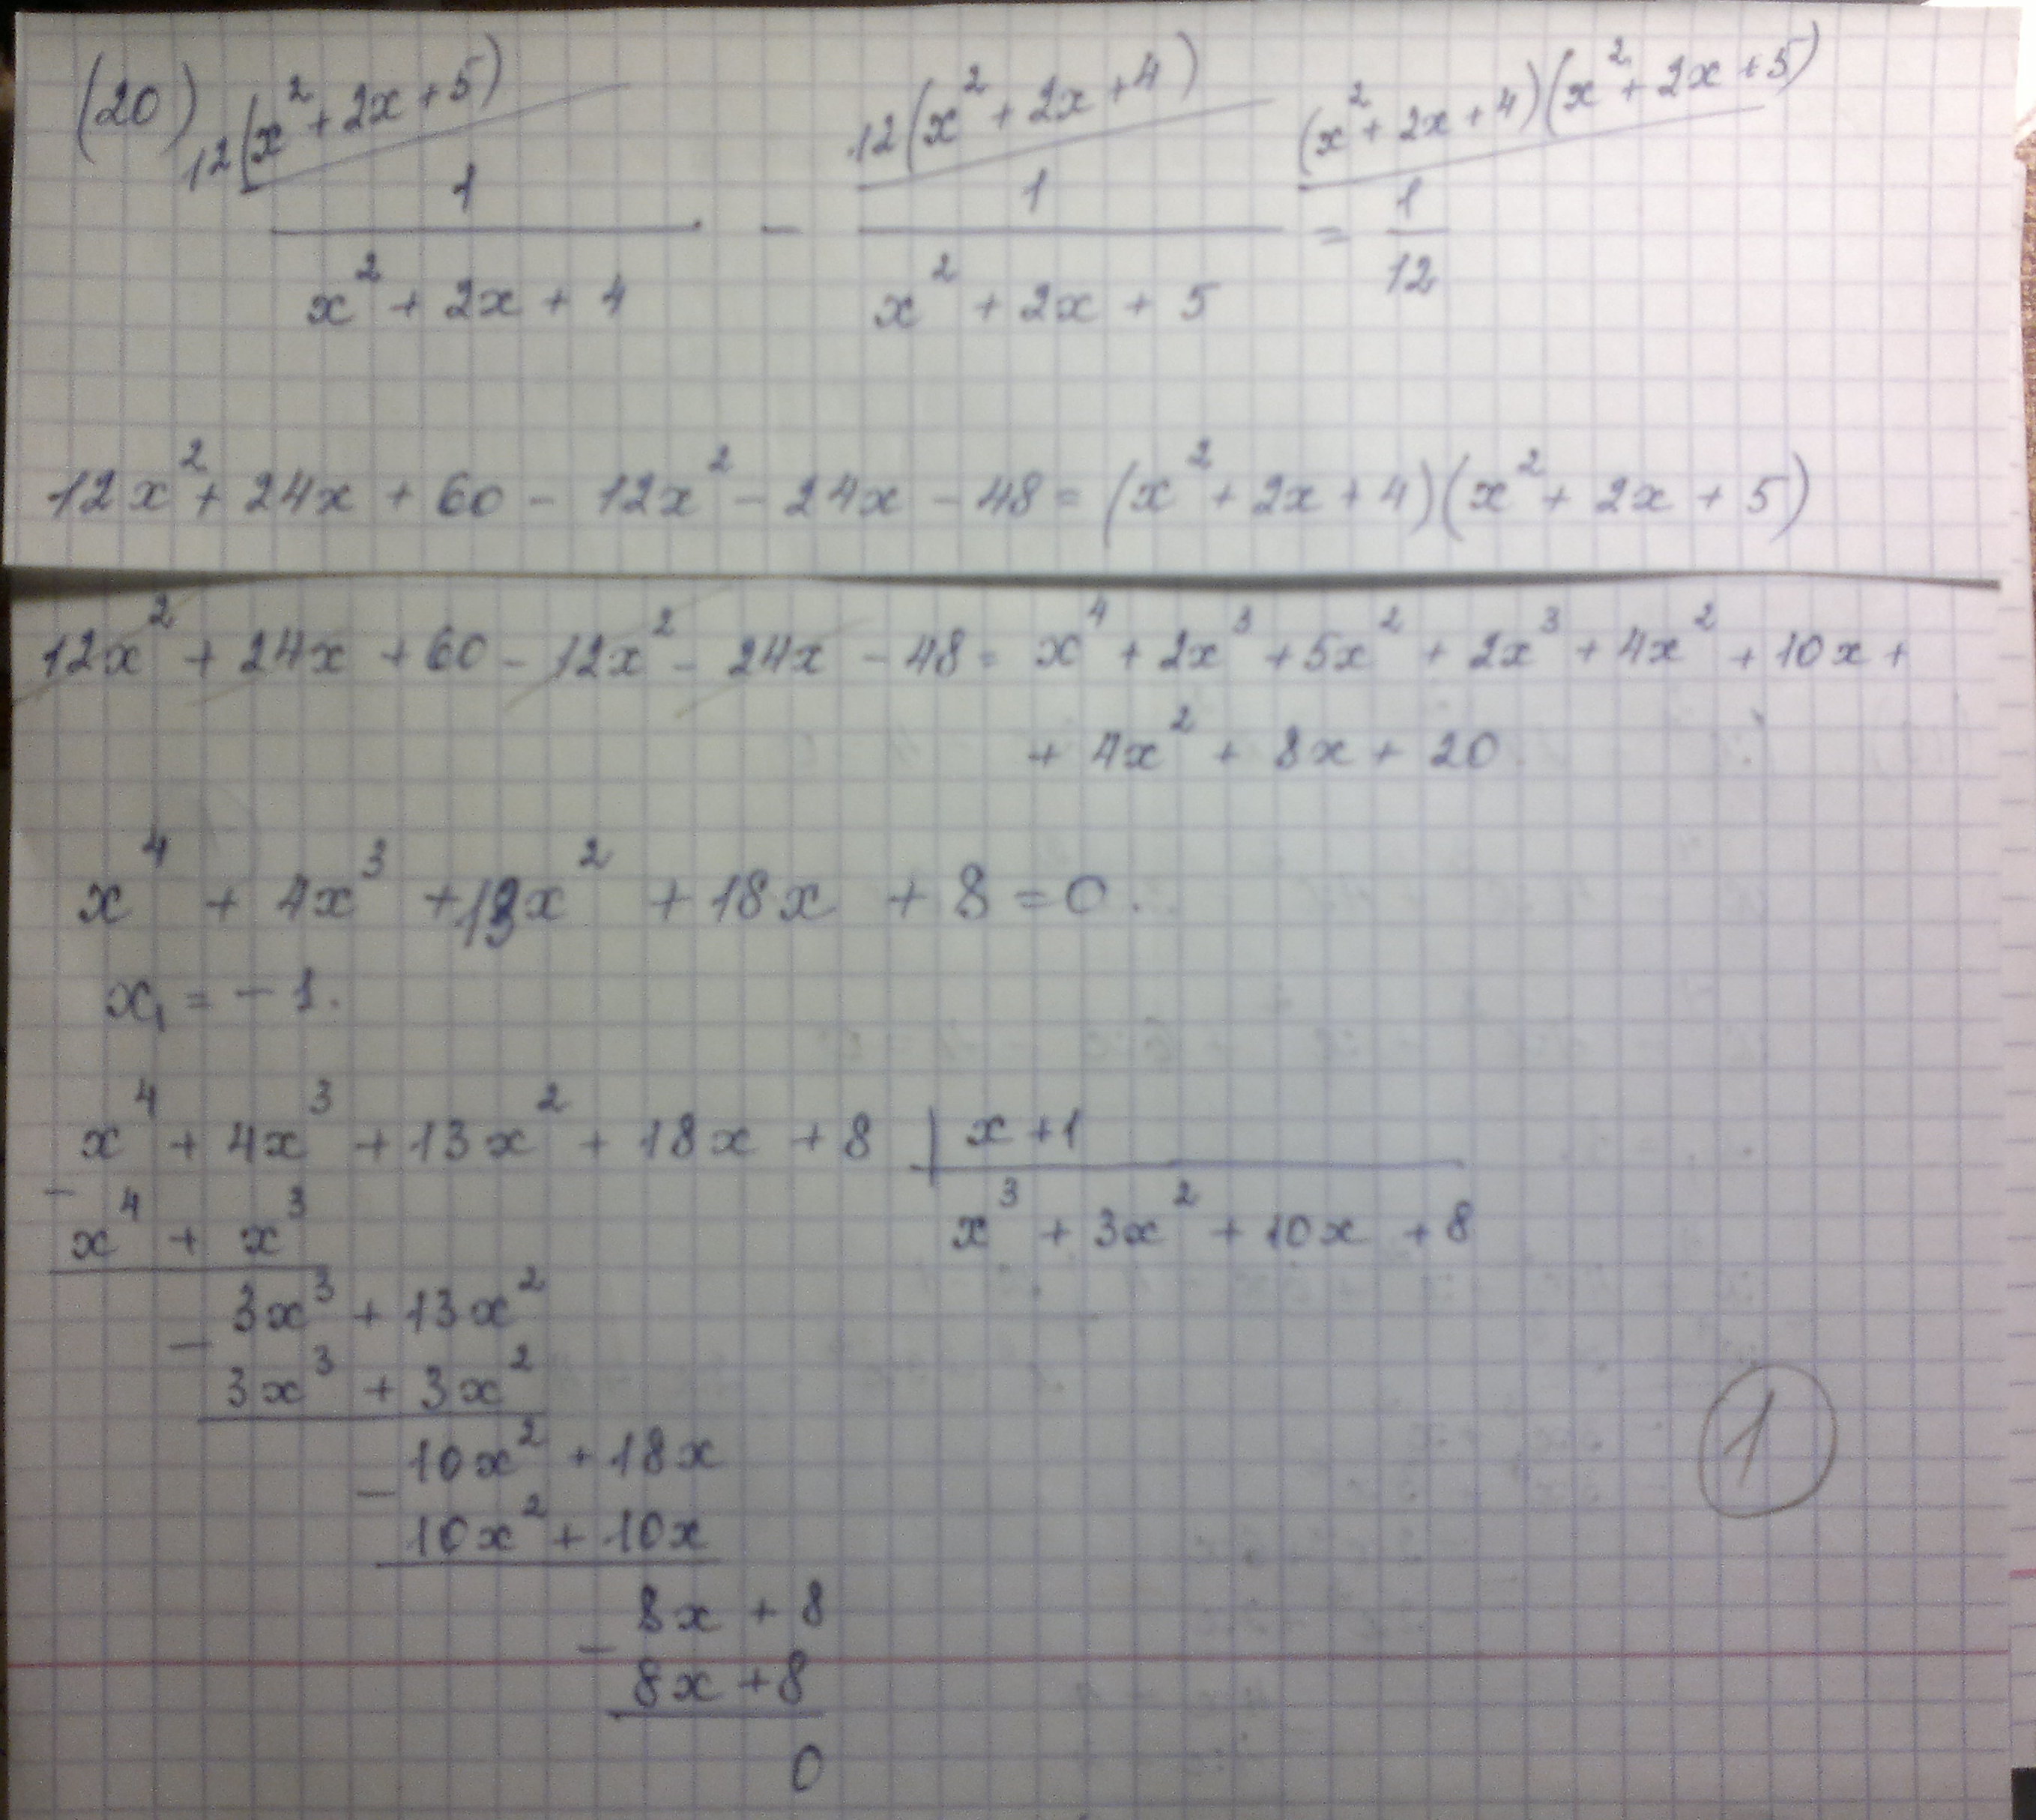 (20) 12(x² + 2x + 5) 12(x² + 2x + 4) (x² + 2x + 4)(x² + 2x + 5)
1 1 1
— − — = —
x² + 2x + 4 x² + 2x + 5 12
12x² + 24x + 60 − 12x² − 24x − 48 = (x² + 2x + 4)(x² + 2x + 5)
12x² + 24x + 60 − 12x² − 24x − 48 = x⁴ + 2x³ + 5x² + 2x³ + 4x² + 10x +
+ 4x² + 8x + 20
x⁴ + 4x³ + 13x² + 18x + 8 = 0.
x₁ = −1.
x⁴ + 4x³ + 13x² + 18x + 8 | x + 1
− x⁴ + x³ x³ + 3x² + 10x + 8
3x³ + 13x²
− 3x³ + 3x²
10x² + 18x
− 10x² + 10x
8x + 8
− 8x + 8
0
1